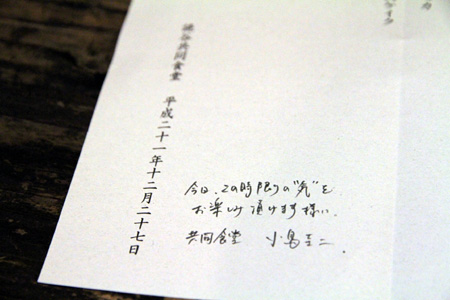 ケイク
渋谷共同食堂 平成二十一年十二月二十七日
今日、この時限りの"気"を
お楽しみ頂けます様に。
共同食堂 小島